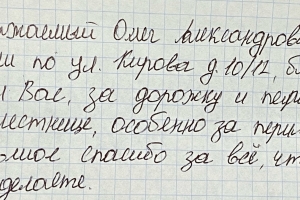 жаемый Олег Александров
ли по ул. Кирова д. 10/12, б
Вас, за дорожку и пери
лестнице, особенно за пери
спасибо за всё, чт
делаете.